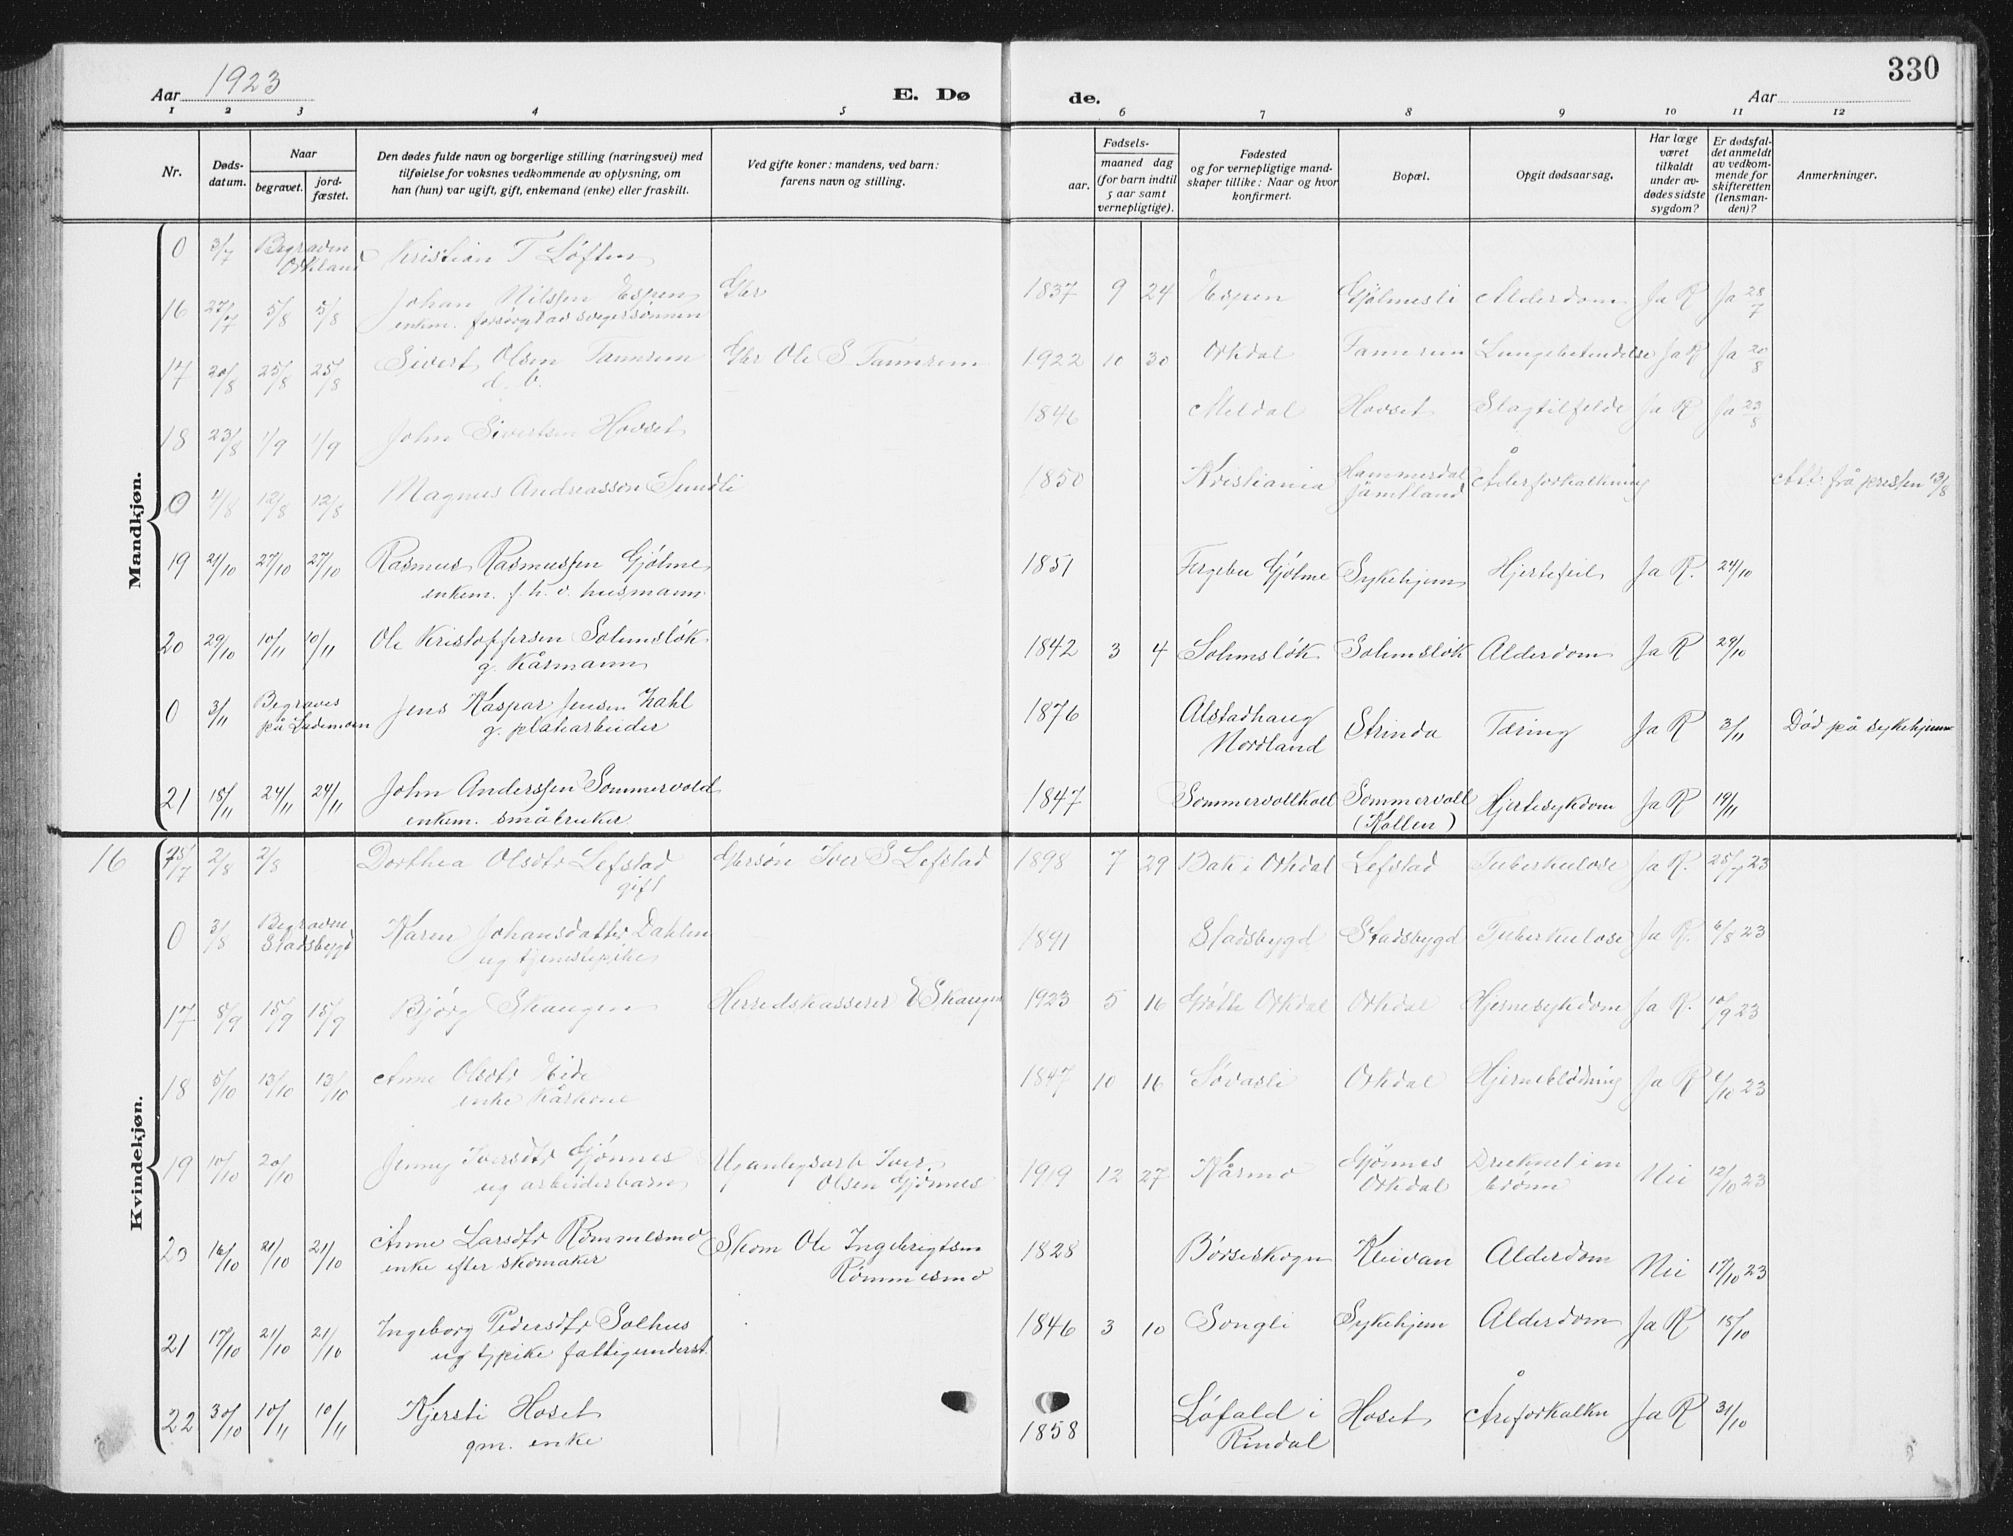 330
Aar 1923
E. Dø
de.
Aar
1 2 3 4 5 6 7 8 9 10 11 12
Nr.
Døds-
datum.
Naar
begravet.
jord-
fæstet.
Den dødes fulde navn og borgerlige stilling (næringsvei) med
tilføielse for voksnes vedkommende av oplysning, om
han (hun) var ugift, gift, enkemand (enke) eller fraskilt.
Ved gifte koner: mandens, ved barn:
farens navn og stilling.
Fødsels-
aar.
maaned dag
(for barn indtil
5 aar samt
vernepligtige).
Fødested
og for vernepligtige mand-
skaper tillike: Naar og hvor
konfirmert.
Bopæl.
Opgit dødsaarsag.
Har læge
været
tilkaldt
under av-
dødes sidste
sygdom?
Er dødsfal-
det anmeldt
av vedkom-
mende for
skifteretten
(lensman-
den)?
Anmerkninger.
Mandkjøn.
0 3/7 Begraven Orkland Kristian T Løften
16 27/7 5/8 5/8 Johan Nilssen Espen Gbr 1837 9 24 Espen Gjølmesli Alderdom Ja R Ja 28/7
enkem. forsørget av svigersønnen
17 20/8 25/8 25/8 Sivert Olsen Tamrem Gbr Ole S Tamrem 1922 10 30 Orkdal Tamrem Lungebetendelse Ja R Ja 20/8
d. b.
18 23/8 1/9 1/9 John Sivertsen Hovset 1846 Meldal Hovset Slagtilfelde Ja R Ja 23/8
0 4/8 12/8 12/8 Magnus Andreasson Sundli 1850 Kristiania Hammerdal Jämtland Åderforkalkning Att. frå presten 13/8
19 21/10 27/10 27/10 Rasmus Rasmussen Gjølme 1851 Fergebu Gjølme Sykehjem Hjertefeil Ja R. 24/10
enkem. f. h. v. husmann
20 29/10 10/11 10/11 Ole Kristoffersen Solemsløk 1842 3 4 Solemsløk Solemsløk Alderdom Ja R 29/10
g. Kårmann
0 3/11 Begraves på Lademoen Jens Kaspar Jensen Zahl 1876 Alstadhaug Nordland Strinda Tæring Ja R 3/11 Død på sykehjem
g. platearbeider
21 18/11 24/11 24/11 John Anderssen Sommervold 1847 Sommervollkoll Sommervoll (Kollen) Hjertesykdom Ja R 19/11
enkem. småbruker
Kvindekjøn.
16 25/7 2/8 2/8 Dorthea Olsdtr Lefstad Gbrsøn Iver S Lefstad 1898 7 29 Bak i Orkdal Lefstad Tuberkulose Ja R. 25/7 23
gift
0 3/8 Begraven Stadsbygd Karen Johansdatter Dahlen 1891 Stadsbygd Stadsbygd Tuberkulose Ja R. 6/8 23
ug tjenestepike
17 8/9 15/9 15/9 Bjørg Skaugen Herredskasserer E Skaugen 1923 5 16 Grøtte Orkdal Orkdal Hjernesykdom Ja R. 10/9 23
18 5/10 13/10 13/10 Anne Olsdtr Eide 1847 10 16 Søvasli Orkdal Hjerneblødning Ja R 6/10 23
enke Kårkone
19 10/10 20/10 Jenny Iversdtr Gjønnes Uganlegsarb Iver Olsen Gjønnes 1919 12 27 Kårmo Gjønnes Orkdal Druknet i en brønn Nei 12/10 23
ug arbeiderbarn
20 16/10 21/10 21/10 Anne Larsdtr Rømmesmo Skom Ole Ingebrigtsen Rømmesmo 1828 Børseskogn Kleivan Alderdom Nei 17/10 23
enke efter skomaker
21 17/10 21/10 21/10 Ingeborg Pedersdtr Solhus 1846 3 10 Songli Sykehjem Alderdom Ja R 18/10
ug tjpike fattigunderst.
22 30/10 10/11 10/11 Kjersti Hoset 1858 Løfald i Rindal Hoset Åreforkalkn Ja R 31/10
gm. enke